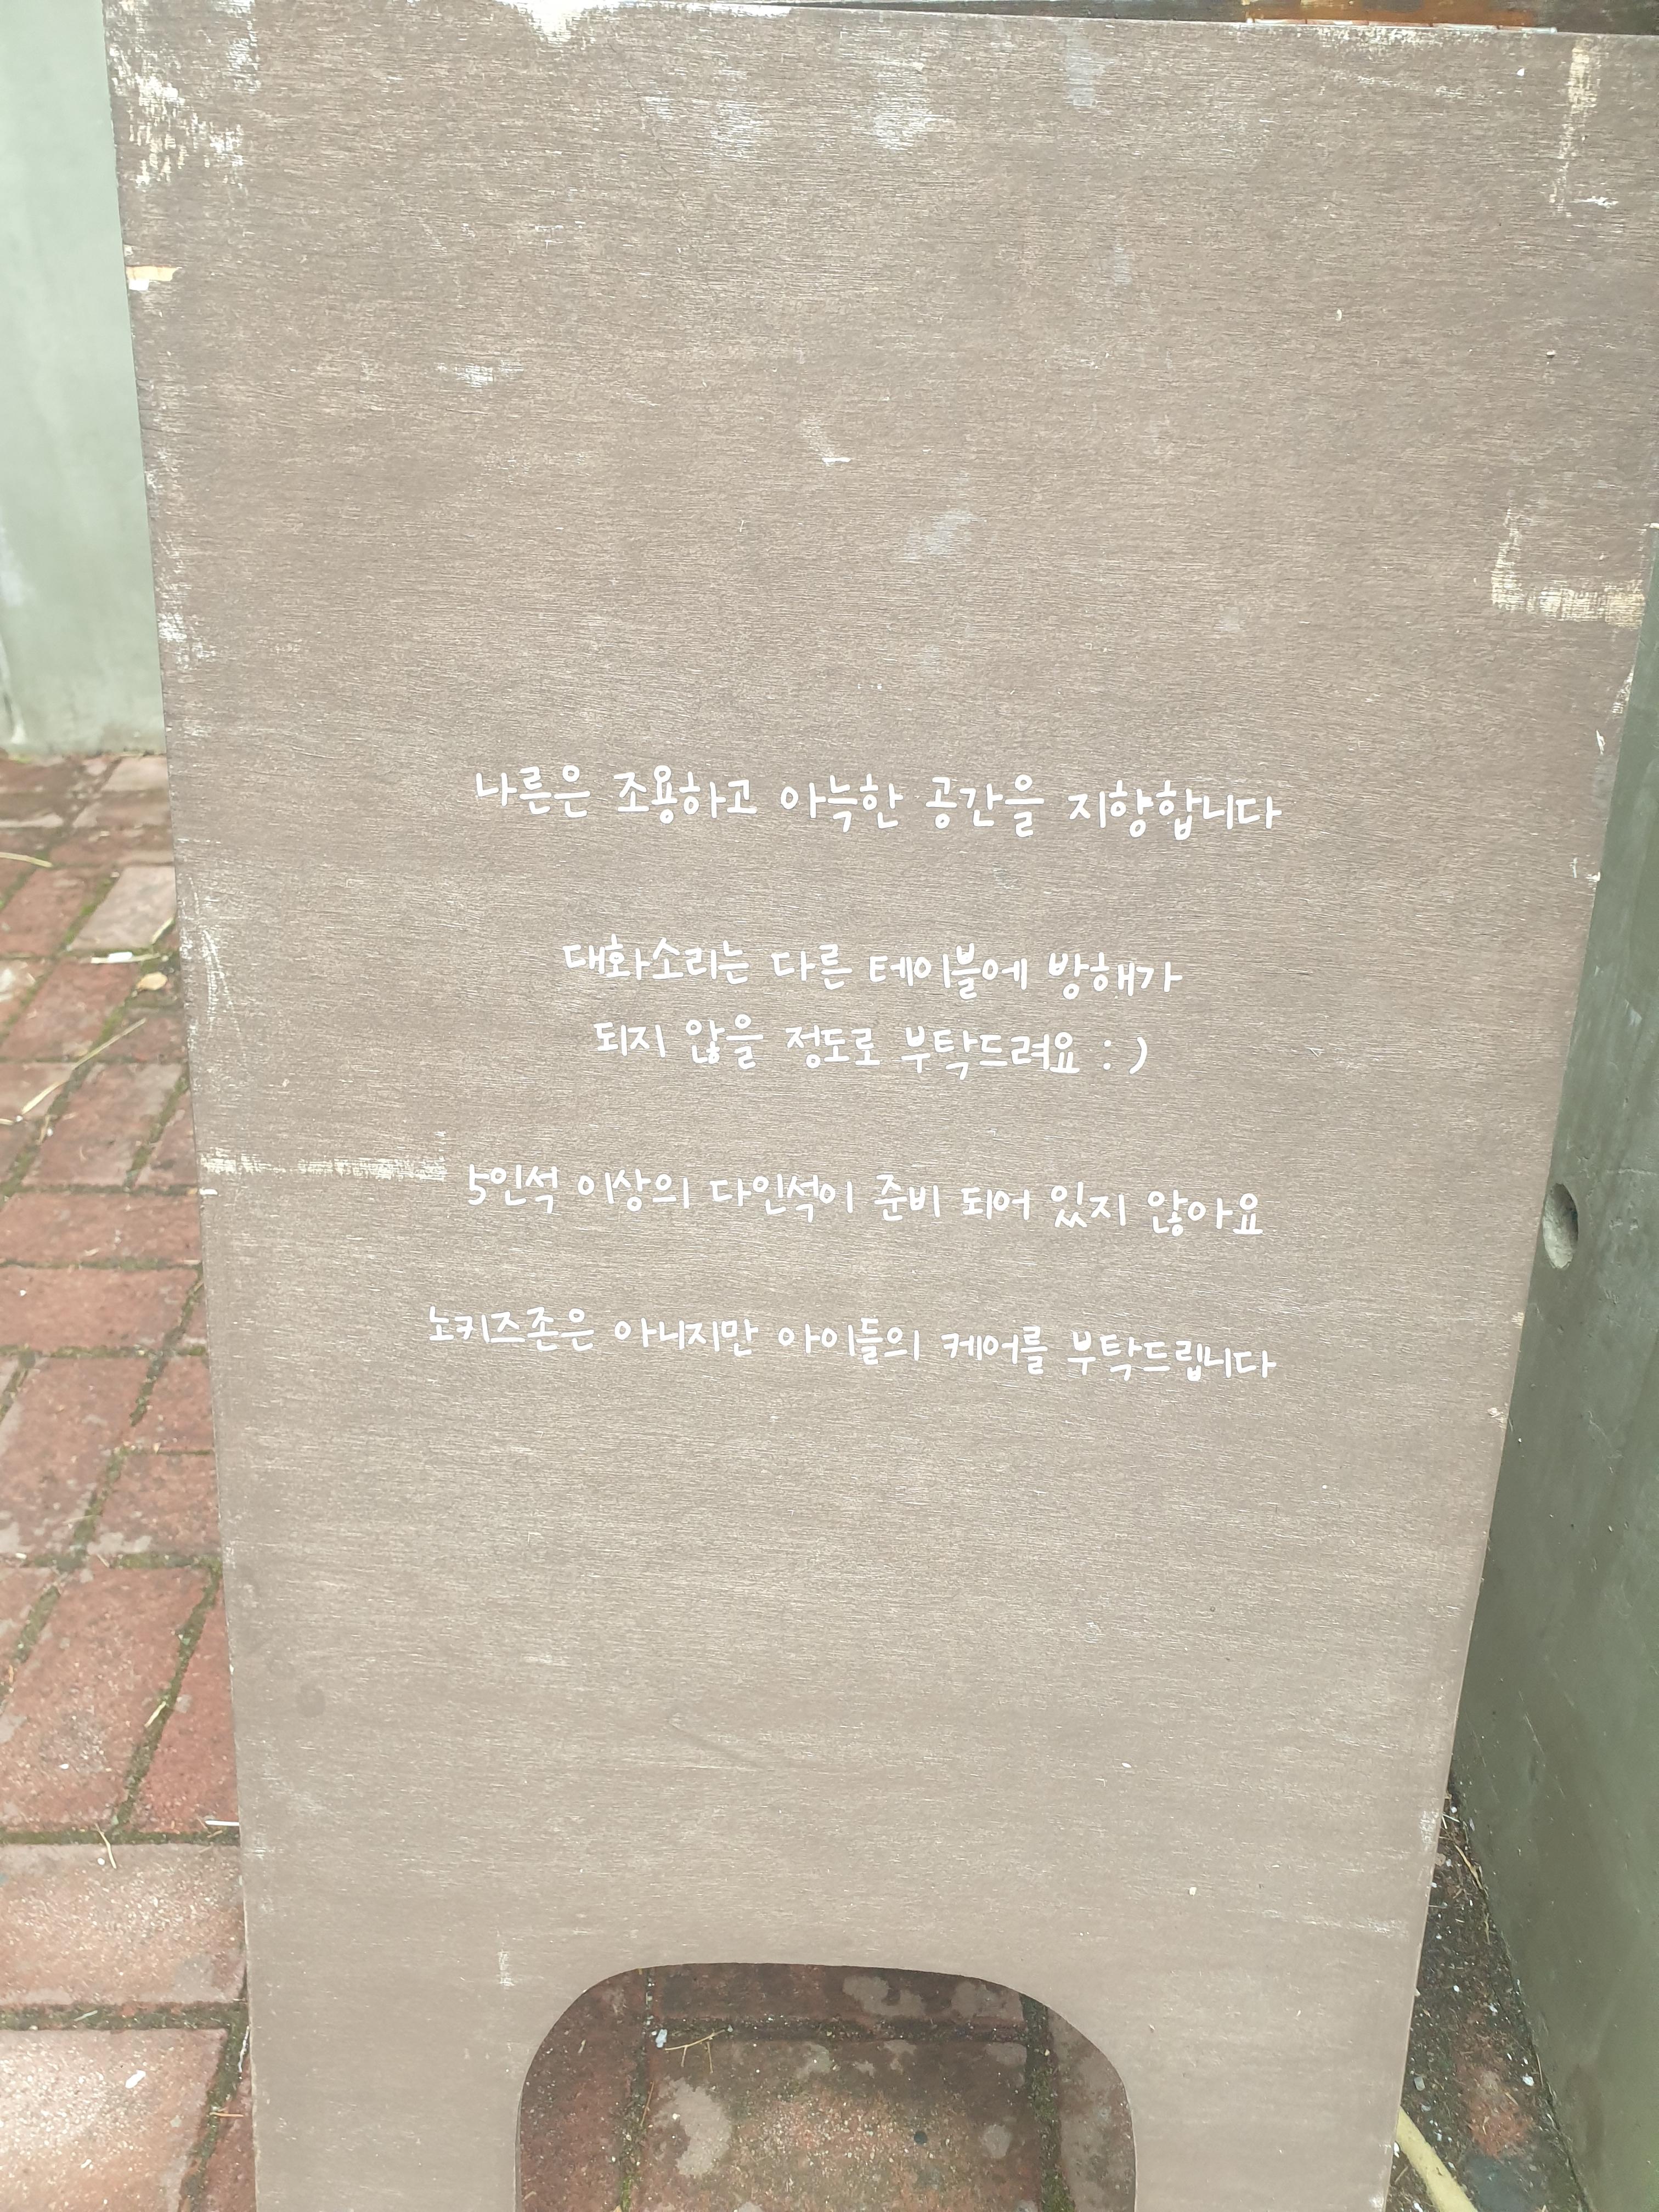 나른은 조용하고 아늑한 공간을 지향합니다
대화소리는 다른 테이블에 방해가
되지 않을 정도로 부탁드려요 : )
5인석 이상의 다인석이 준비 되어 있지 않아요
노키즈존은 아니지만 아이들의 케어를 부탁드립니다